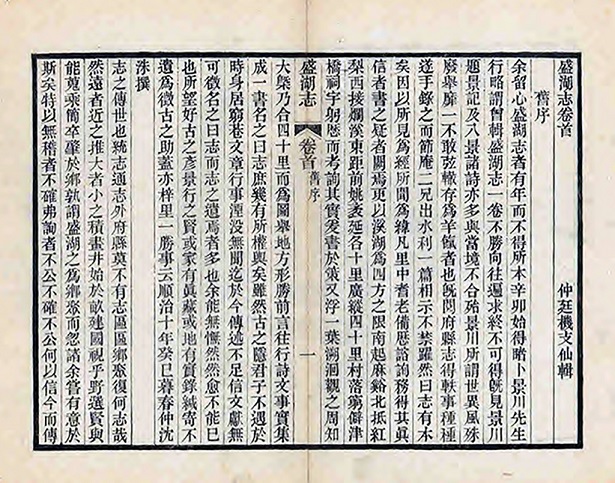 盛湖志卷首
舊序　仲廷機支仙輯
余留心盛湖志者有年而不得所本辛卯始得睹卜景川先生
行略謂曾輯盛湖志一卷不勝向往遍求終不可得既見景川
題景記及八景諸詩亦多與當境不合殆景川所謂世異風殊
廢舉靡一不敢弦轍存爲羊餼者也既閱府縣志得軼事種種
遂手錄之而節庵二兄出水利一篇相示不禁躍然曰志有本
矣因以所見爲經所聞爲緯凡里中耆老備歷諮詢務得其眞
信者書之疑者闕焉更以溪湖爲四方之限南起麻谿北抵紅
梨西接爛溪東距前姚袤延各十里廣縱四十里村落僻津
橋祠宇躬歷而考詢其實爰書於策又浮一葉溯洄觀之周知
盛湖志　卷首　舊序　一
大槩乃合四十里而爲圖舉地方形勝前言往行詩文事實集
成一書名之曰志庶幾有所權輿矣雖然古之隱君子不遇於
時身居窮巷文章行事湮沒無聞迄於今傳述不足信文獻無
可徵名之曰志而志之遺焉者多也余能無慨然然愈不能已
也所望好古之彥景行之賢或家有眞藏或地有實錄緘寄不
遺爲徵古之助蓋亦梓里一勝事云順治十年癸巳暮春仲沈
洙撰
志之傳世也統志通志外府縣莫不有志區區鄉聚復何志哉
然遠者近之推大者小之積畫井始於畝建國視乎野選賢與
能蒐乘簡卒肇於鄉孰謂盛湖之爲鄉聚而忽諸余嘗有意於
斯矣特以無稽者不確弗詢者不公不確不公何以信今而傳